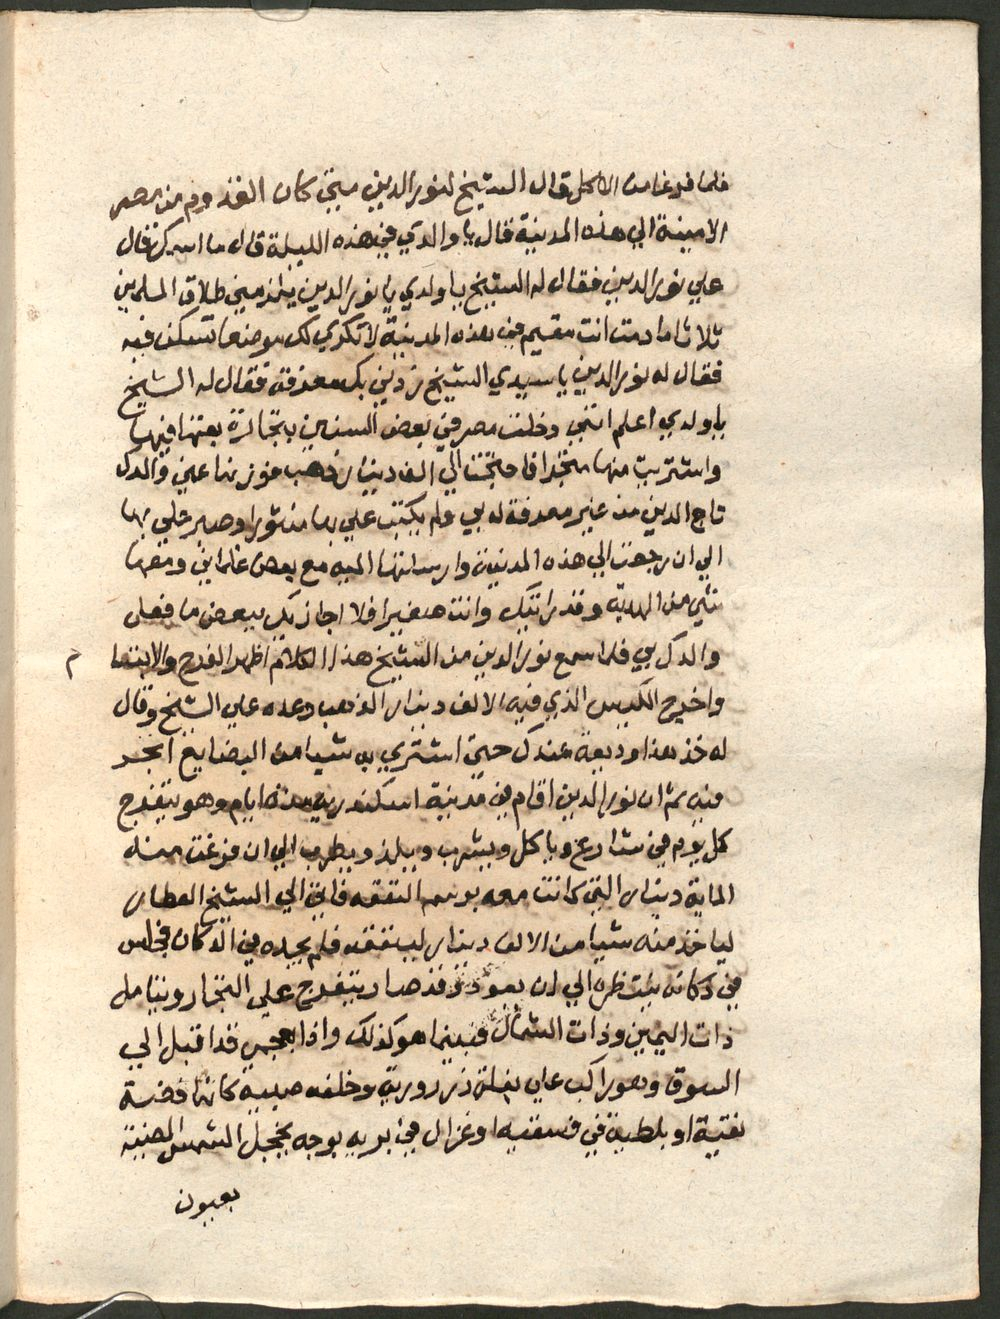 فلما فرغا من الاكل قال الشيخ لنور الدين متي كان القدوم من مصر
الامينة الي هذه المدينة قال يا والدي في هذه الليلة قال ما اسمك قال
علي نور الدين فقال له الشيخ يا ولدي يا نور الدين يلزمني طلاق المسلمين
ثلاثا ما دمت انت مقيم في هذه المدينة لا تكري لك موضعا تسكن فيه
فقال له نور الدين يا سيدي الشيخ زدني بك معرفة فقال له الشيخ
يا ولدي اعلم انني دخلت مصر في بعض السنين بتجارة بعتها فيها
واشتريت منها متجرا فاحتجت الي الف دينار ذهب فوزنها عني والدك
تاج الدين من غير معرفة له بي ولم يكتب علي بها منشورا وصبر علي بها
الي ان رجعت الي هذه المدينة وارسلتها اليه مع بعض غلماني ومعها
شي من الهدية وقد رايتك وانت صغيرا فلا اجازيك ببعض ما فعل
والدك بي فلما سمع نور الدين من الشيخ هذا الكلام اظهر الفرح والابتسا م
واخرج الكيس الذي فيه الالف دينار الذهب وعده علي الشيخ وقال
له خذ هذا وديعة عندك حتي اشتري به شيا من البضايع اتجر
فيه ثم ان نور الدين اقام في مدينة اسكندريه مدة ايام وهو يتفرج
كل يوم في شارع وياكل ويشرب ويلذ ويطرب الي ان فرغت منه
الماية دينار التي كانت معه برسم النفقه فاتي الي الشيخ العطار
لياخذ منه شيا من الالف دينار لينفقه فلم يجده في الدكان فجلس
في دكانه ينتظره الي ان يعود وقد صار يتفرج علي التجار ويتامل
ذات اليمين وذات الشمال فبينما هو كذلك واذا بعجمي قد اقبل الي
السوق وهو راكب علي بغلة زرزورية وخلفه صبية كانها فضة
نقية او بلطية في فسقيه او غزال في بريه بوجه يخجل الشمس المضية
بعيون